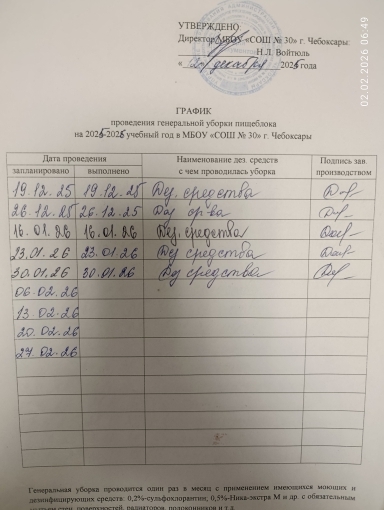 УТВЕРЖДЕНО
Директор МБОУ «СОШ № 30» г. Чебоксары:
Н.Л. Войтюль
декабря 2025 года
02.02.2026 06:49
ГРАФИК
проведения генеральной уборки пищеблока
на 2025-2026 учебный год в МБОУ «СОШ № 30» г. Чебоксары
Дата проведения Наименование дез. средств Подпись зав.
запланировано выполнено с чем проводилась уборка производством
19.12.25 19.12.25 Дез. средства
26.12.25 26.12.25 Дез ср-ва
16.01.26 16.01.26 Дез. средства
23.01.26 23.01.26 Дез средства
30.01.26 30.01.26 Дез средства
06.02.26
13 02.26
20.02.26
27 02.26
Генеральная уборка проводится один раз в месяц с применением имеющихся моющих и
дезинфицирующих средств: 0,2%-сульфохлорантин; 0,5%-Ника-экстра М и др. с обязательным
поверхностей, радиаторов, подоконников и т.д.